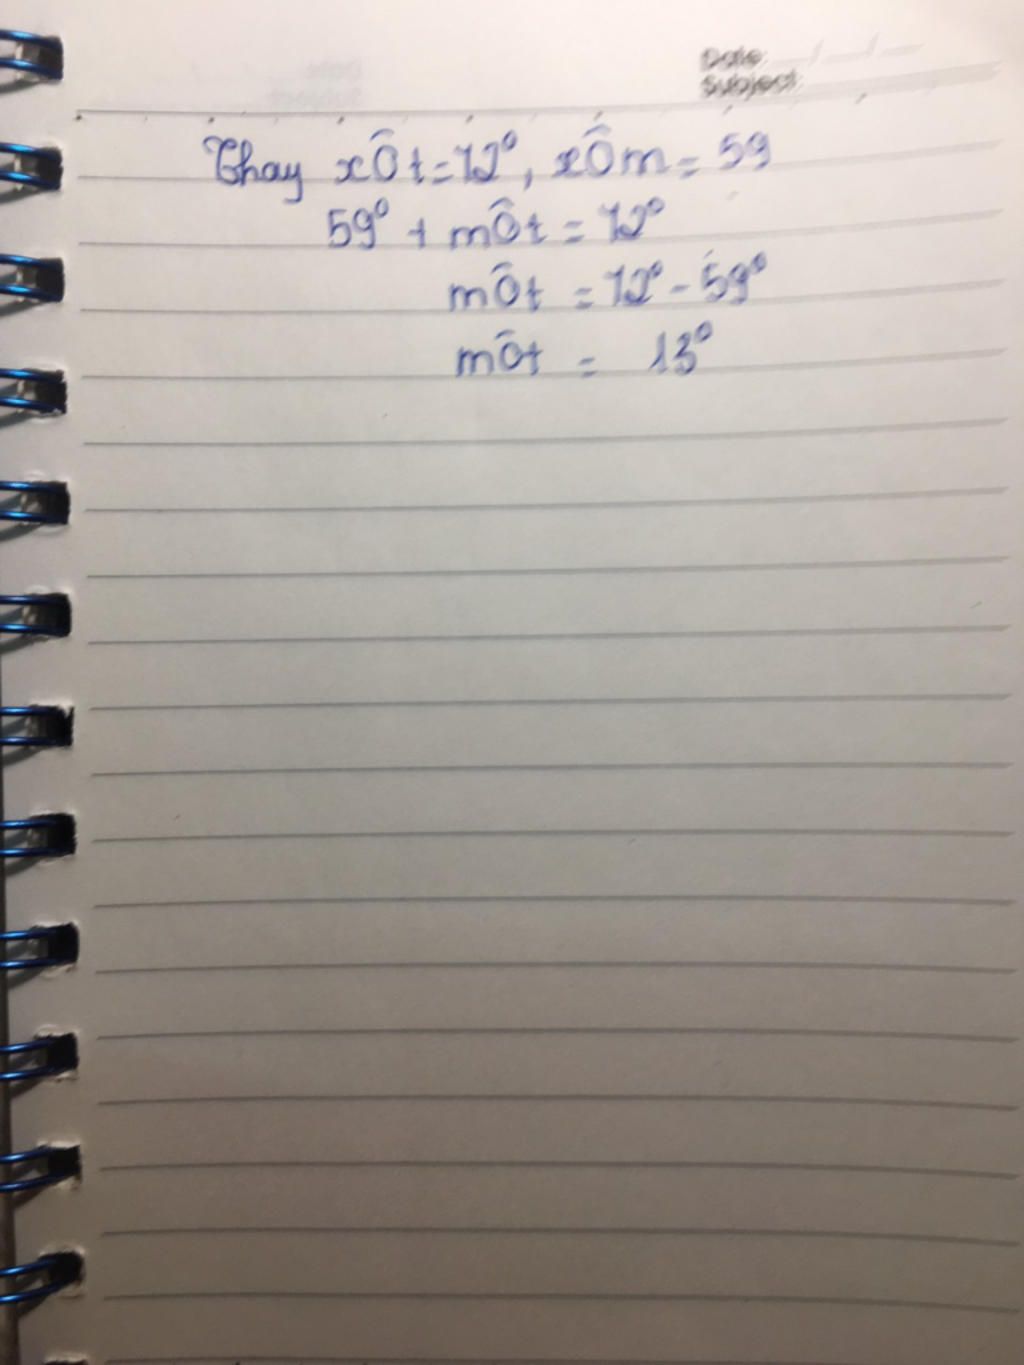 Date: / /
Subject:
Thay xÔt = 72°, xÔm = 59
59° + mÔt = 72°
mÔt = 72° - 59°
mÔt = 13°